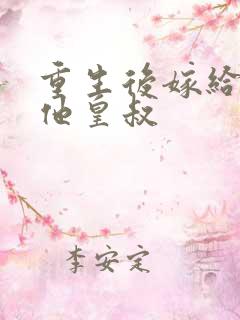 重生後嫁給
他皇叔
李安定